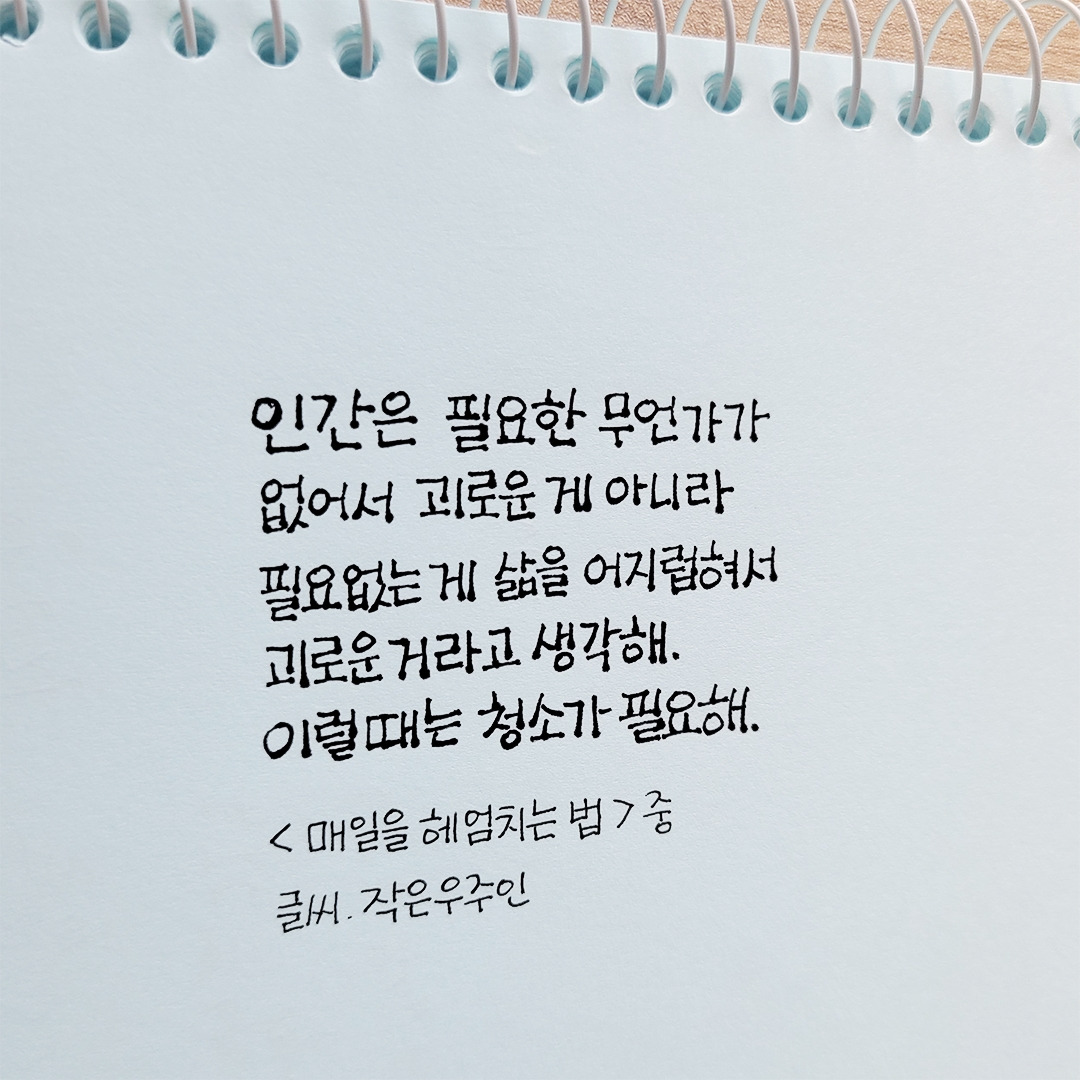 인간은 필요한 무언가가
없어서 괴로운 게 아니라
필요없는 게 삶을 어지럽혀서
괴로운 거라고 생각해.
이럴때는 청소가 필요해.
<매일을 헤엄치는 법> 중
글씨. 작은우주인